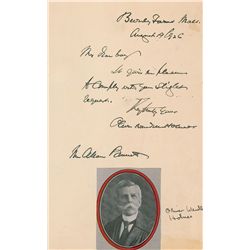 Beverly Farms Mass.
August 19 1926
My dear boy
It gives me pleasure
to comply with your
request.
Truly yours
Oliver Wendell Holmes
Mr Bennett
Oliver Wendell
Holmes